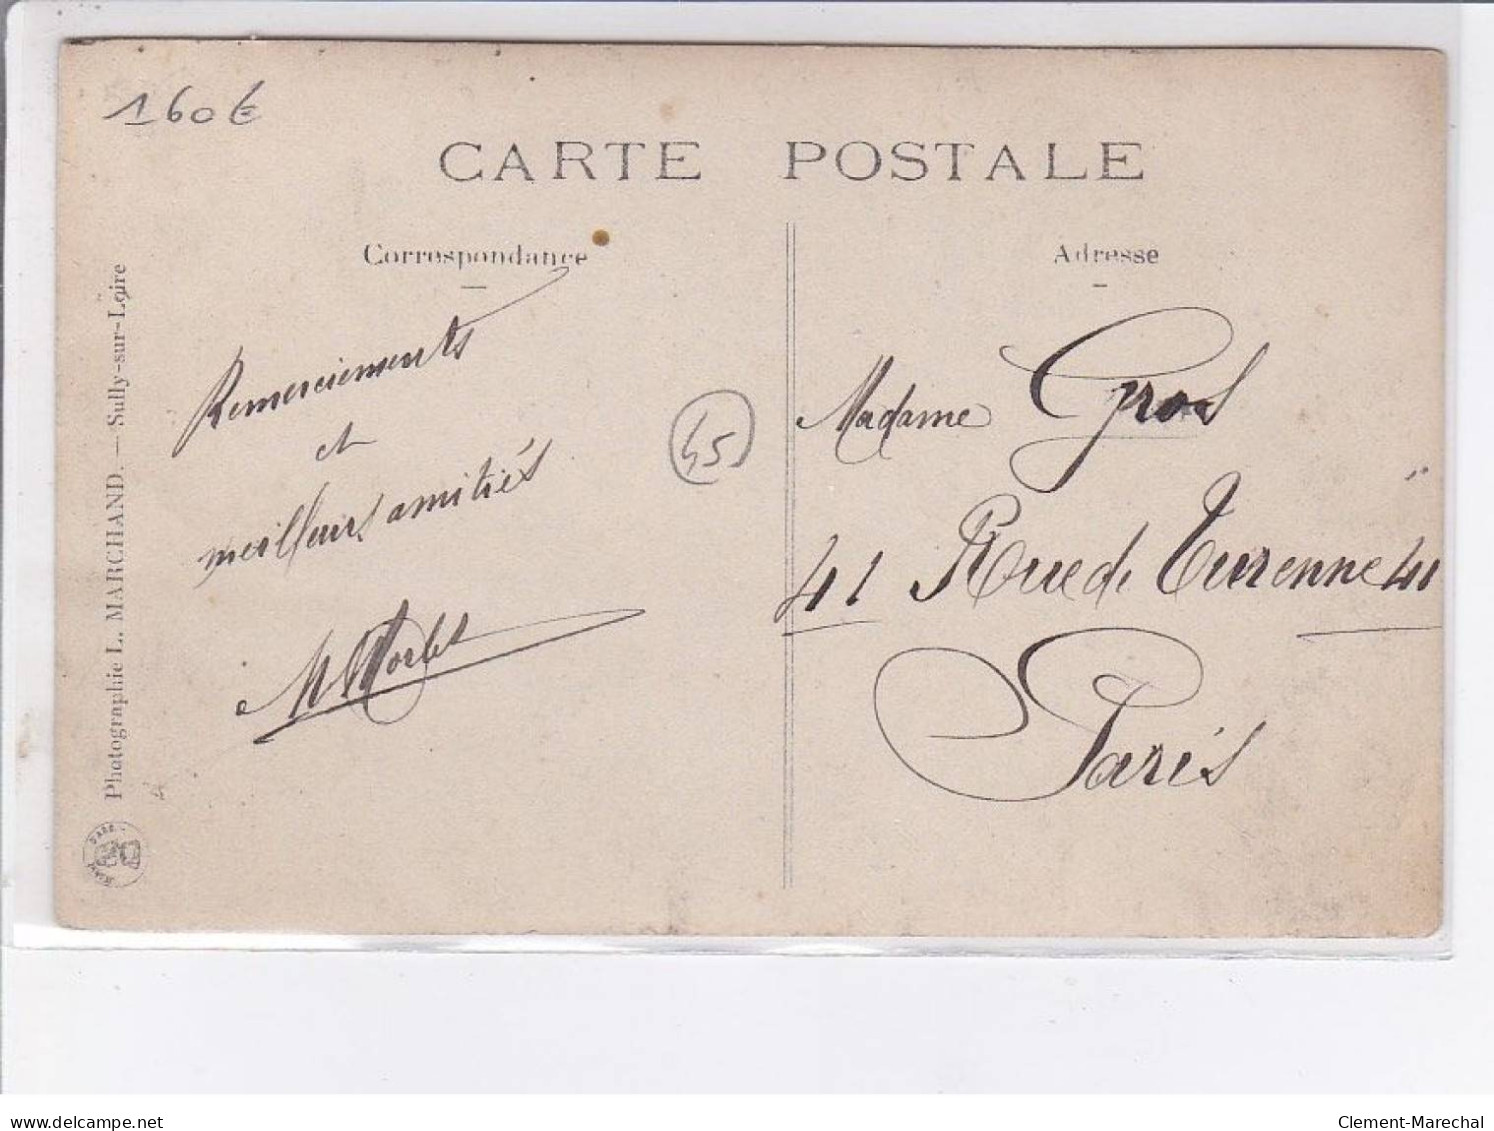 160€
CARTE POSTALE
Correspondance
Adresse
Remerciements
et
meilleurs amitiés
45
Madame Gros
41 Rue de Turenne 41
Paris
Photographie L. MARCHAND. — Sully-sur-Loire
delcampe.net
Clement-Marechal